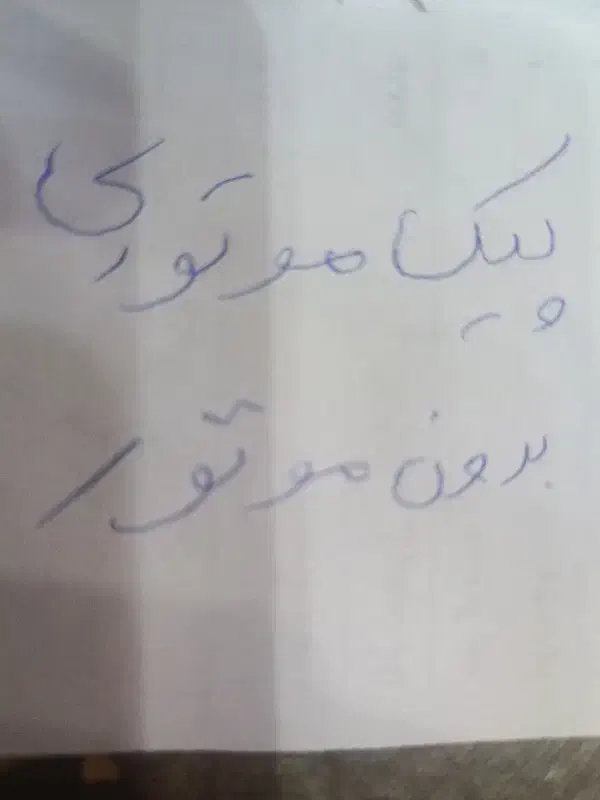 پیک موتوری
بدون موتور